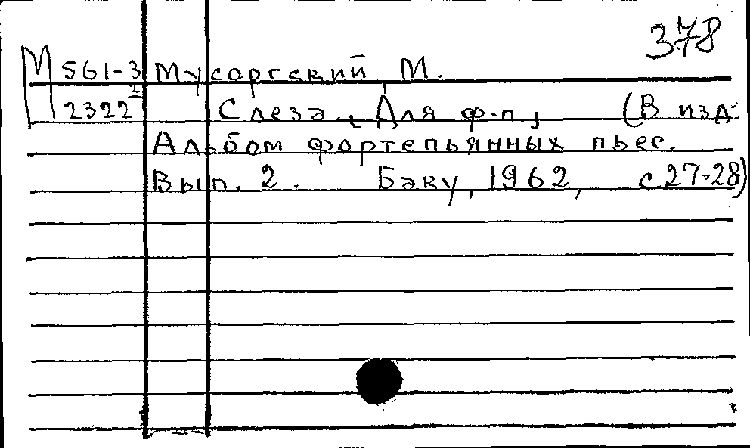 378
М 561-3 Мусоргский, М.
2322 Слеза, [Для ф-п.] (В изд:
Альбом фортепьянных пьес.
Вып. 2. Баку, 1962, с.27-28)